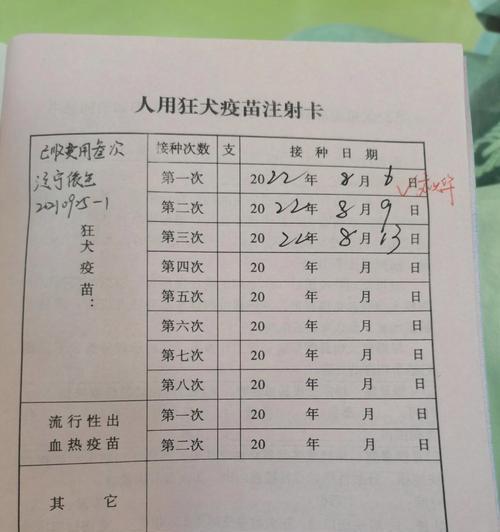 人用狂犬疫苗注射卡
已收费用叁次
辽宁依生
20210925-1
狂犬疫苗：
接种次数 支 接种日期
第一次 2022年8月6日
第二次 2022年8月9日
第三次 2022年8月13日
第四次 20 年 月 日
第五次 20 年 月 日
第六次 20 年 月 日
第七次 20 年 月 日
第八次 20 年 月 日
流行性出
血热疫苗
第一次 20 年 月 日
第二次 20 年 月 日
其它